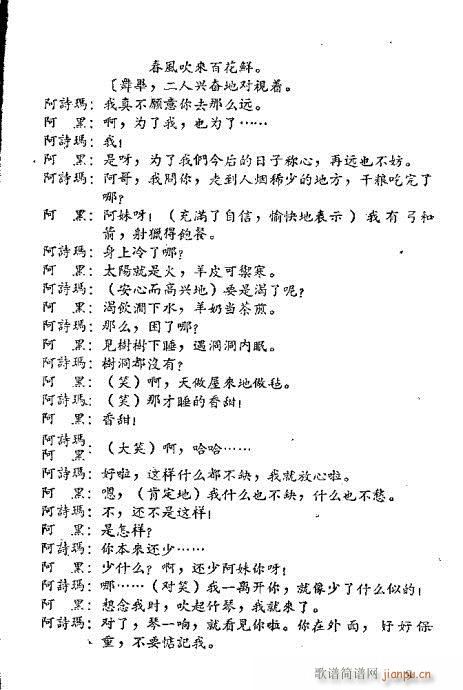 春風吹來百花鮮。
〔舞畢，二人兴奋地对視着。
阿詩瑪：我真不願意你去那么远。
阿　黑：啊，为了我，也为了……
阿詩瑪：我！
阿　黑：是呀，为了我們今后的日子称心，再远也不妨。
阿詩瑪：阿哥，我問你，走到人烟稀少的地方，干粮吃完了
哪？
阿　黑：阿妹呀！（充滿了自信，愉快地表示）我有弓和
箭，射獵得飽餐。
阿詩瑪：身上冷了哪？
阿　黑：太陽就是火，羊皮可禦寒。
阿詩瑪：（安心而高兴地）要是渴了呢？
阿　黑：渴飲澗下水，羊奶当茶煎。
阿詩瑪：那么，困了哪？
阿　黑：見樹樹下睡，遇洞洞內眠。
阿詩瑪：樹洞都沒有？
阿　黑：（笑）啊，天做屋來地做毡。
阿詩瑪：（笑）那才睡的香甜！
阿　黑：香甜！
阿詩瑪：
阿　黑：（大笑）啊，哈哈……
阿詩瑪：好啦，这样什么都不缺，我就放心啦。
阿　黑：嗯，（肯定地）我什么也不缺，什么也不愁。
阿詩瑪：不，还不是这样！
阿　黑：是怎样？
阿詩瑪：你本來还少……
阿　黑：少什么？啊，还少阿妹你呀！
阿詩瑪：哪……（对笑）我一离开你，就像少了什么似的！
阿　黑：想念我时，吹起竹琴，我就來了。
阿詩瑪：对了，琴一响，就看見你啦。你在外面，好好保
重，不要惦記我。
歌谱简谱网
jianpu.cn